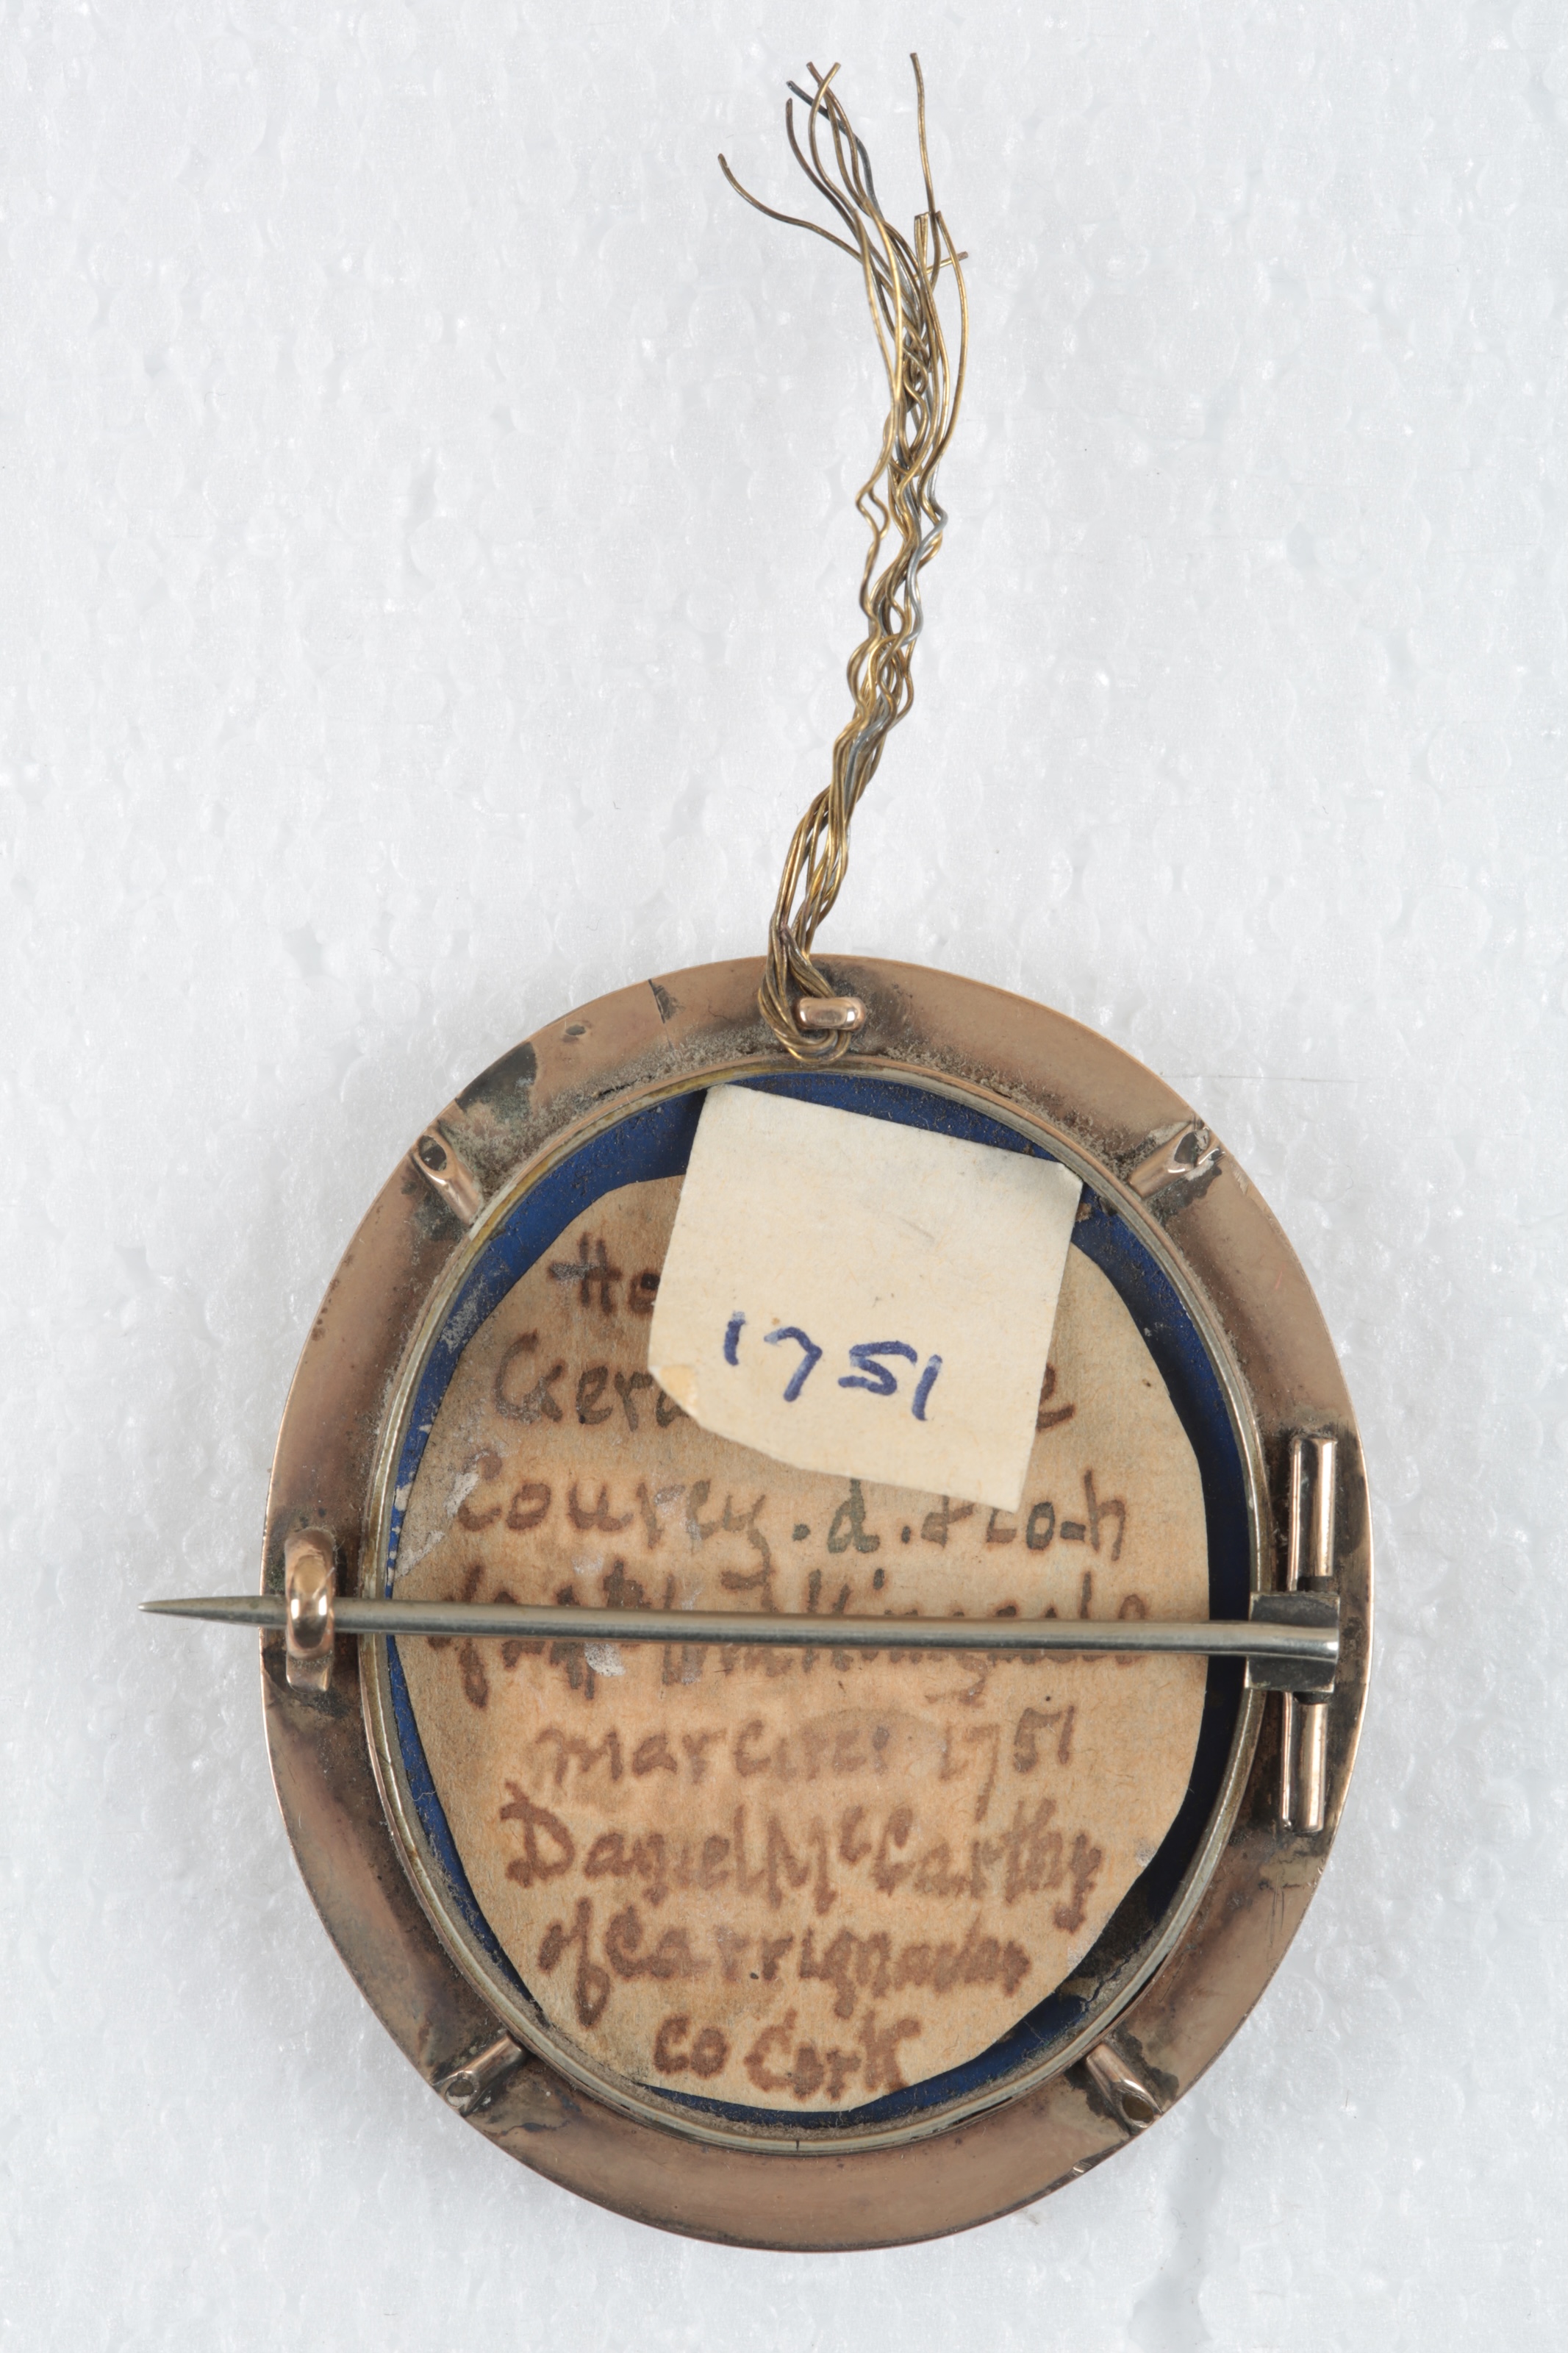 1751
Ho
Gera e
Courcy . d. of 20th
of
married 1751
Daniel McCarthy
of Carrignavar
co Cork